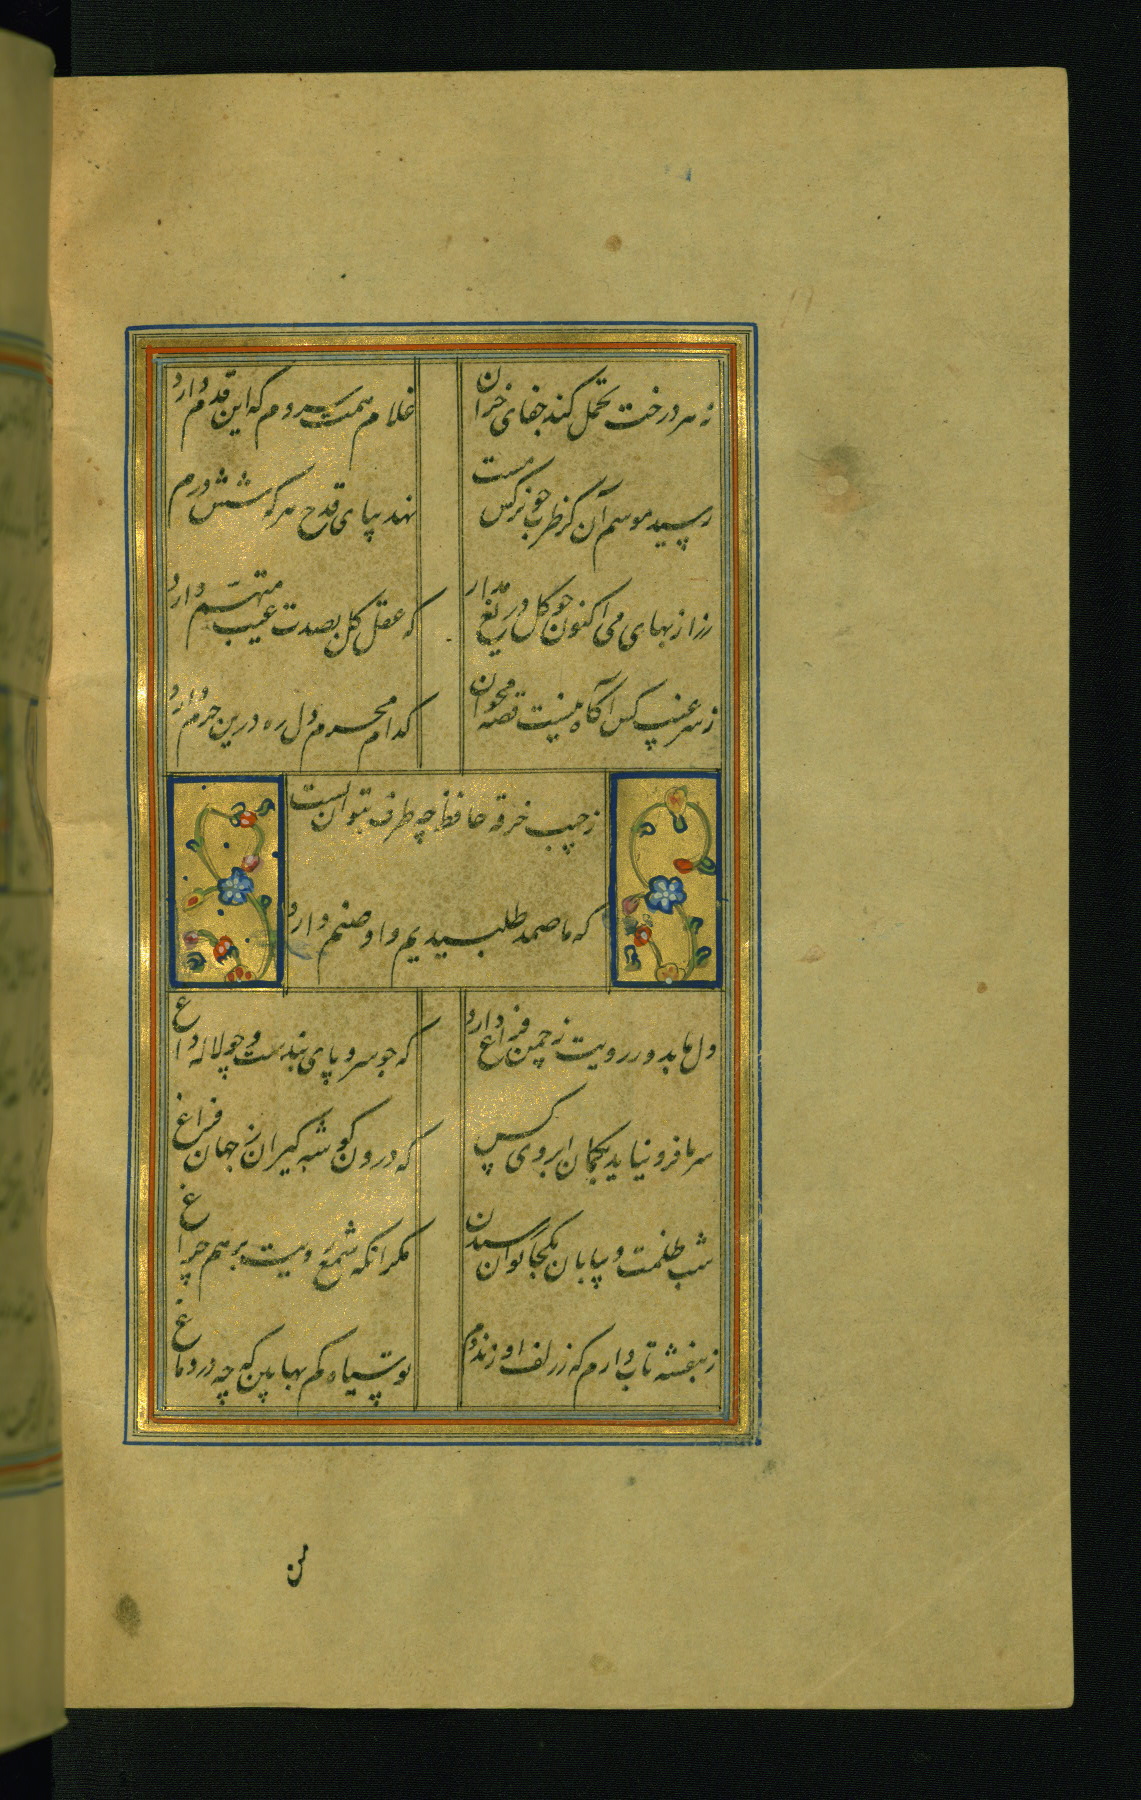 نه هر درخت تحمل کند جفای خزان
غلام همت سروم که این قدم دارد
رسید موسم آن کز طرب چو نرکس مست
نهد بپای قدح هر که شش درم دارد
زر از بهای می اکنون چو کل دریغ مدار
که عقل کل بصدت عیب متهم دارد
ز سر غیب کس آکاه نیست قصه مخوان
کدام محرم دل ره درین حرم دارد
ز جیب خرقه حافظ چه طرف بتوان بست
که ما صمد طلبیدیم و او صنم دارد
دل ما بدور رویت ز چمن فراغ دارد
که چو سرو پای بندست و چو لاله داغ
سر ما فرو نیاید بکمان ابروی کس
که درون کوشه کیران ز جهان فراغ
شب ظلمت و بیابان بکجا توان رسیدن
مکر انکه شمع رویت برهم چراغ
ز بنفشه تاب دارم که ز زلف او زند دم
تو سیاه کم بها بین که چه در دماغ